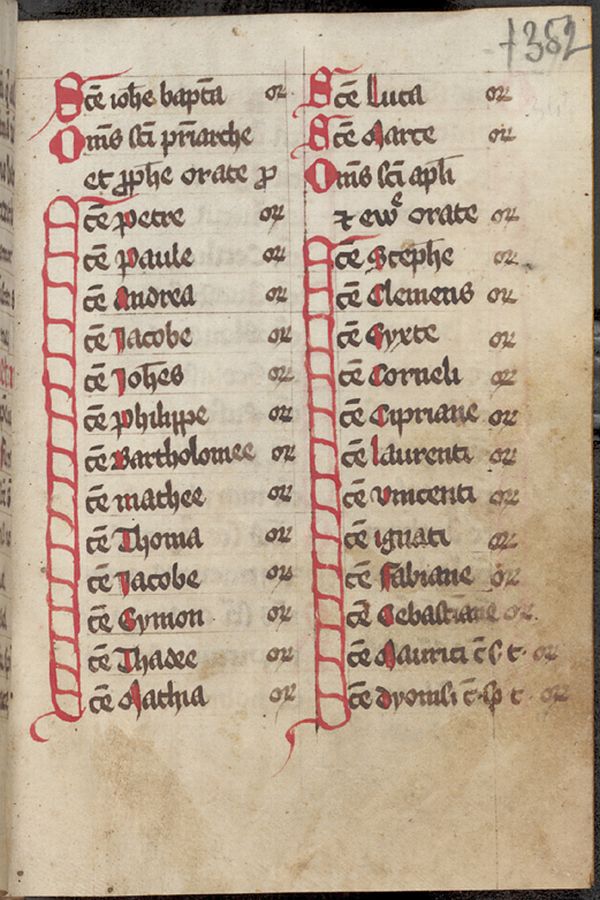 Sc̄e ioh̄e bapt̄a or
Om̄s sc̄i pr̄iarche
et ꝓph̄e orate ꝓ
Sc̄e petre or
Sc̄e paule or
Sc̄e Andrea or
Sc̄e Jacobe or
Sc̄e Joh̄es or
Sc̄e philippe or
Sc̄e Bartholomee or
Sc̄e mathee or
Sc̄e Thoma or
Sc̄e Jacobe or
Sc̄e Symon or
Sc̄e Thadee or
Sc̄e Mathia or
†382
Sc̄e Luca or
Sc̄e Marce or
Om̄s sc̄i apl̄i
⁊ eww̄ᵉ orate or
Sc̄e Steph̄e or
Sc̄e Clemens or
Sc̄e Syxte or
Sc̄e Corneli or
Sc̄e Cipriane or
Sc̄e laurenti or
Sc̄e vincenti or
Sc̄e ignati or
Sc̄e fabiane or
Sc̄e Sebastiane or
Sc̄e Maurici c̄ s̄ t· or
Sc̄e dyonisi c̄· sp̄ t· or